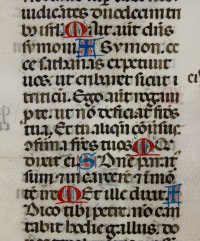 iudicātes duodecim t
bꝰ isrl. Ait aut̄ dn̄s
symoni Symon. ec
ce sathanas expetiuit
uos. ut cribaret sicut t
triticū. Ego aut̄ rogaui
p̱ te. ut nō deficiat fides
tua. Et tu aliqn̄ cōuersꝰ
cōfirma frēs tuos Qi
dixit ei Dn̄e
sum in carcerē in mo
tē ire Et ille dixit
Dico tibi petre. nō can
tabit hodie gallus. do